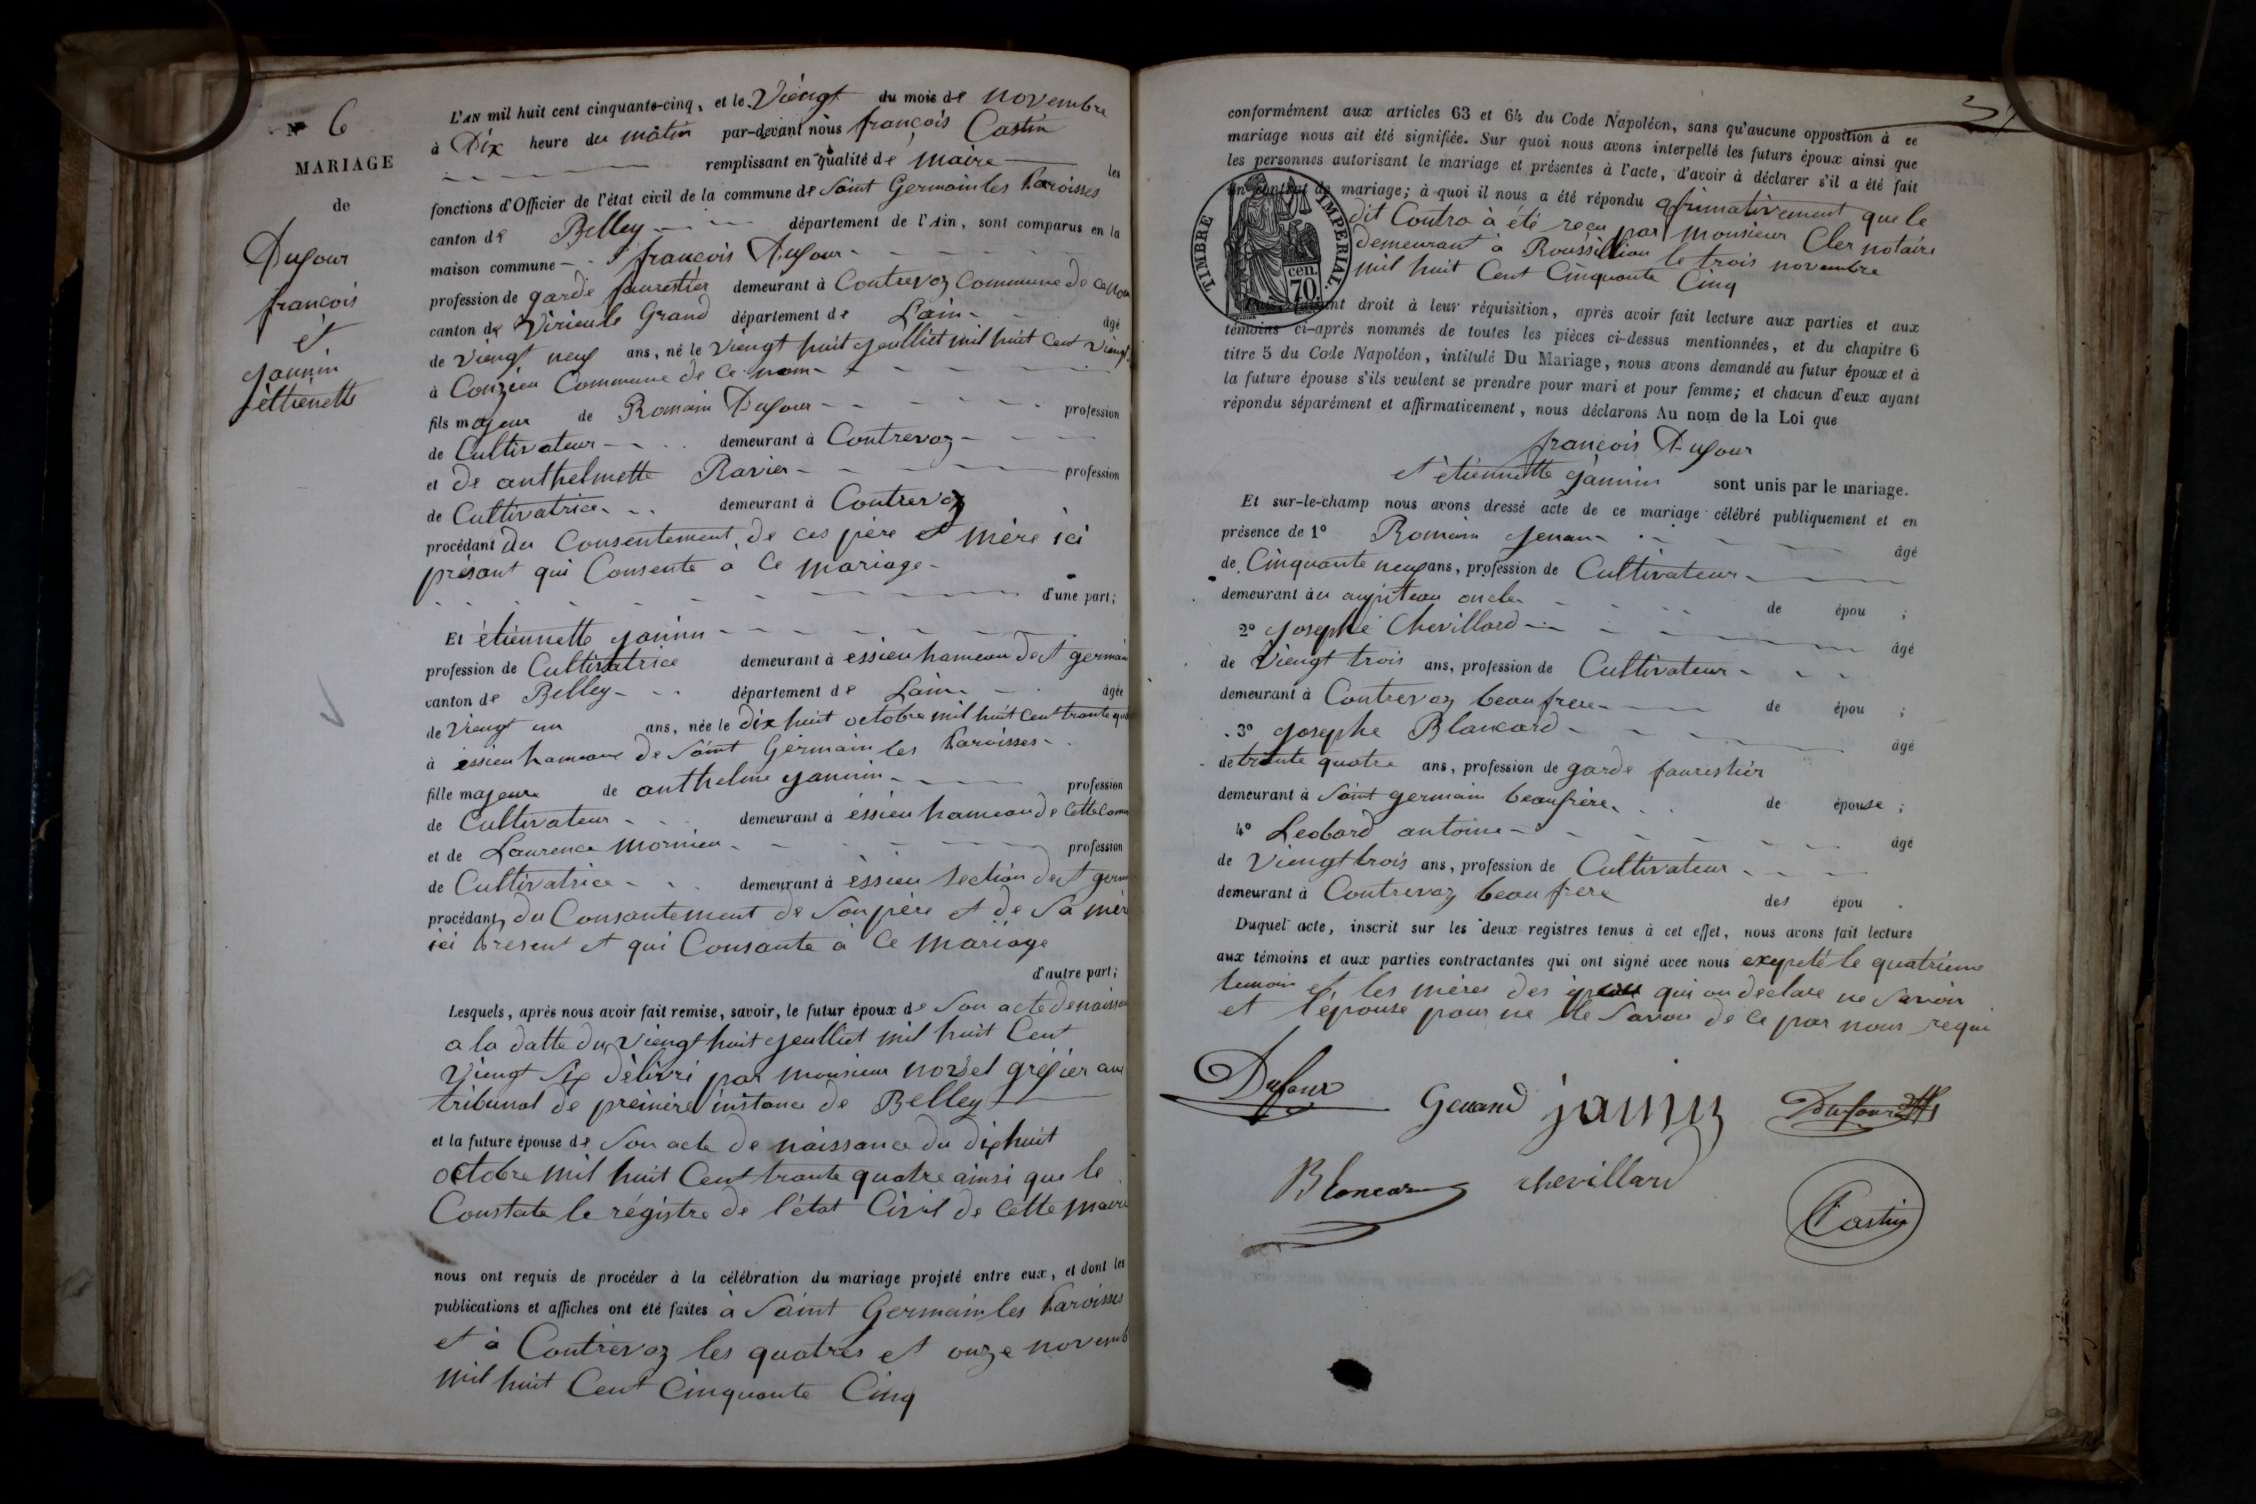 N° 6
MARIAGE
de
Dufour
françois
et
jannin
étiènette
L'AN mil huit cent cinquante-cinq, et le Viengt du mois de novembre
à Dix heure du matin par-devant nous françois Castin
remplissant en qualité de maire les
fonctions d'Officier de l'état civil de la commune de Saint Germain les Paroisses
canton de Belley département de l'Ain, sont comparus en la
maison commune françois Dufour
profession de garde faurestier demeurant à Contrevoz Commune de ce nom
canton de Virieu le Grand département de L'ain âgé
de Viengt neuf ans, né le viengt huit jeulliet mil huit Cent Viengt
à Conzieu Commune de ce nom
fils majeur de Romain Dufour profession
de Cultivateur demeurant à Contrevoz
et de anthelmette Ravier profession
de Cultivatrice demeurant à Contrevoz
procédant du Consentement de ces père et mère ici
présant qui Consente à Ce mariage
d'une part;
Et étiennette jannin
profession de Cultivatrice demeurant à éssieu hameau de St germain
canton de Belley département de Lain âgée
de Viengt un ans, née le dix huit octobre mil huit Cent trante qua
à éssieu hameau de Saint Germain les Paroisses
fille majeure de anthelme jannin profession
de Cultivateur demeurant à éssieu hameau de Cette Comm
et de Laurence mornieu profession
de Cultivatrice demeurant à éssieu Section de St germ
procédant du Consantement de Son père et de Sa mèr
ici present et qui Consante à Ce mariage
d'autre part;
Lesquels, après nous avoir fait remise, savoir, le futur époux de Son acte de naissan
a la datte du Viengt huit jeulliet mil huit Cent
Viengt Six délivri par monsieur gréfier au
tribunal de preinière instance de Belley
et la future épouse de Son acte de naissance du dix huit
octobre mil huit Cent trante quatre ainsi que le
Constate le régistre de l'état Civil de Cette mairi
nous ont requis de procéder à la célébration du mariage projeté entre eux, et dont les
publications et affiches ont été faites à Saint Germain les Paroisses
et à Contrevoz les quatres et onze novemb
mil huit Cent Cinquante Cinq
conformément aux articles 63 et 64 du Code Napoléon, sans qu'aucune opposition à ce
mariage nous ait été signifiée. Sur quoi nous avons interpellé les futurs époux ainsi que
les personnes autorisant le mariage et présentes à l'acte, d'avoir à déclarer s'il a été fait
un contrat de mariage; à quoi il nous a été répondu afirmativement que le
dit Contra à été reçu par monsieur Cler notaire
demeurant à Roussillion le trois novembre
mil huit Cent Cinquante Cinq
TIMBRE IMPÉRIAL.
cen.
70
droit à leur réquisition, après avoir fait lecture aux parties et aux
témoins ci-après nommés de toutes les pièces ci-dessus mentionnées, et du chapitre 6
titre 5 du Code Napoléon, intitulé Du Mariage, nous avons demandé au futur époux et à
la future épouse s'ils veulent se prendre pour mari et pour femme; et chacun d'eux ayant
répondu séparément et affirmativement, nous déclarons Au nom de la Loi que
françois Dufour
et étiennette jannin sont unis par le mariage.
Et sur-le-champ nous avons dressé acte de ce mariage célébré publiquement et en
présence de 1° Romain jenan âgé
de Cinquante neuf ans, profession de Cultivateur
demeurant à oncle de épou ;
2° josephe Chevillard âgé
de Viengt trois ans, profession de Cultivateur
demeurant à Contrevoz beau frere de épou ;
3° josephe Blancard âgé
de trante quatre ans, profession de garde faurestier
demeurant à Saint germain beaufrère de épouse ;
4° Leobard antoine âgé
de Viengt trois ans, profession de Cultivateur
demeurant à Contrevoz beau frere des épou .
Duquel acte, inscrit sur les deux registres tenus à cet effet, nous avons fait lecture
aux témoins et aux parties contractantes qui ont signé avec nous exepeté le quatrieme
temoin et les mères des qui on declare ne Savoir
et l'épouse pour ne le Savoir de ce par nous requi
Dufour Genand janin Dufour
Blancard chevillard
Castin